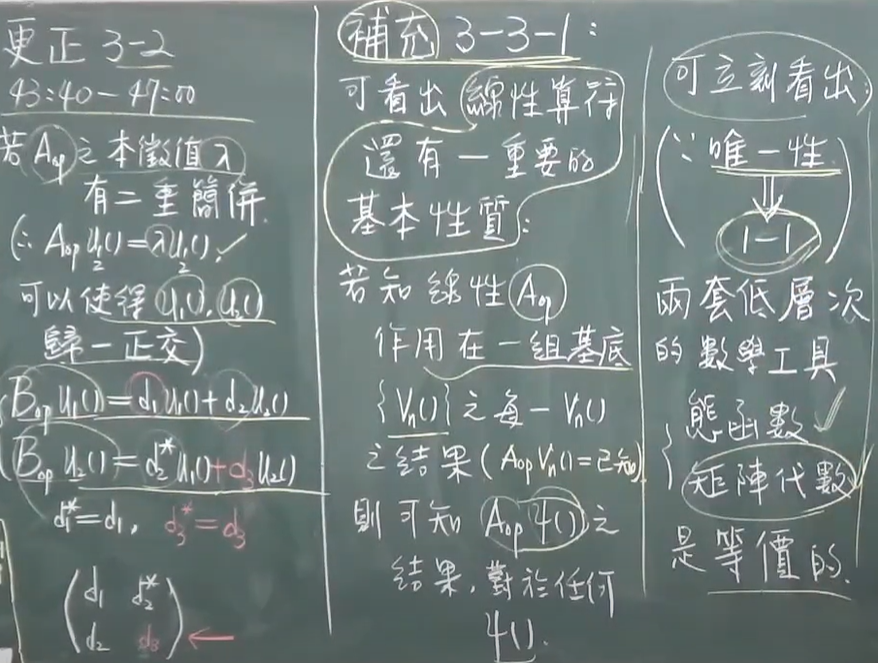 更正 3-2
43:40-47:00
若 Aop 之本徵值 λ
有二重簡併.
(∵ Aop U½() = λU½(). ✓
可以使得 U₁(), U₂()
歸一正交)
{ Bop U₁() = d₁U₁() + d₂U₂()
( Bop U₂() = d₂*U₁() + d₃U₂()
d₁* = d₁, d₃* = d₃
( d₁ d₂*
d₂ d₃ ) ←
補充 3-3-1:
可看出 線性算符
還有一重要的
基本性質:
若知線性 Aop
作用在一組基底
{Vn()} 之每一 Vn()
之結果 (Aop Vn() = 已知)
則可知 Aop ψ() 之
結果, 對於任何
ψ().
可立刻看出:
(∵ 唯一性
⇓
1-1 )
兩套低層次
的數學工具
{ 態函數 ✓
矩陣代數 ✓
是等價的.